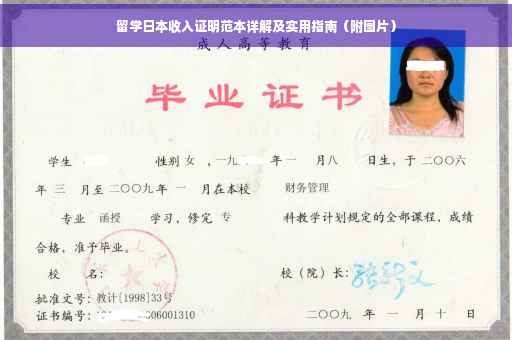 留学日本收入证明范本详解及实用指南（附图片）
成人高等教育
毕业证书
学生 性别 女 ，一九 年 一 月 八 日生，于 二〇〇六
年 三 月至 二〇〇九 年 一 月在本校 财务管理
专业 函授 学习，修完 专 科教学计划规定的全部课程，成绩
合格，准予毕业。
校 名： 校（院）长：
批准文号：教计[1998]33号
证书编号： 06001310 二〇〇九 年 一 月 十 日